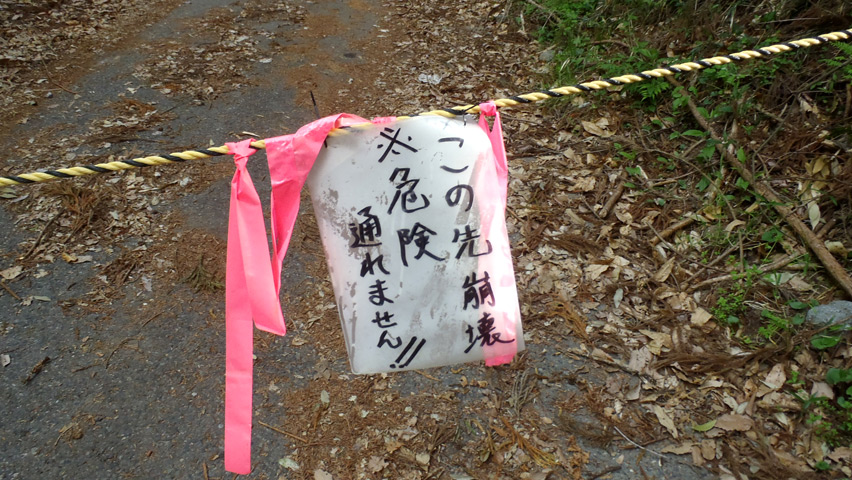 この先崩壊
※危険
通れません!!